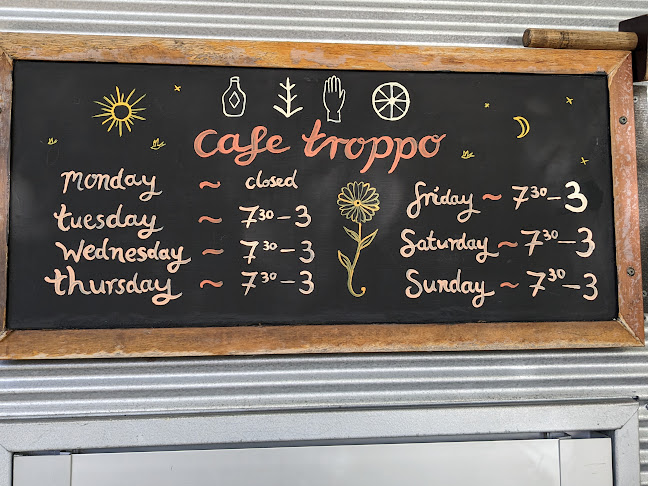 cafe troppo
monday ~ closed
tuesday ~ 7³⁰-3
wednesday ~ 7³⁰-3
thursday ~ 7³⁰-3
friday ~ 7³⁰-3
Saturday ~ 7³⁰-3
Sunday ~ 7³⁰-3